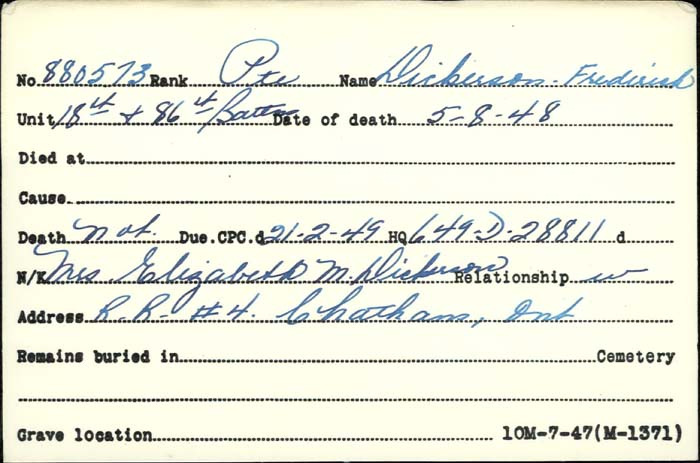 No. 880573 Rank Pte Name Dickerson - Frederick
Unit 18th & 86th Battns Date of death 5-8-48
Died at
Cause
Death Not. Due.CPC.d 21-2-49 HQ 649-D-28811 d
N/K Mrs Elizabeth M. Dickerson Relationship w
Address R.R. #4. Chatham, Ont
Remains buried in Cemetery
Grave location 10M-7-47(M-1371)